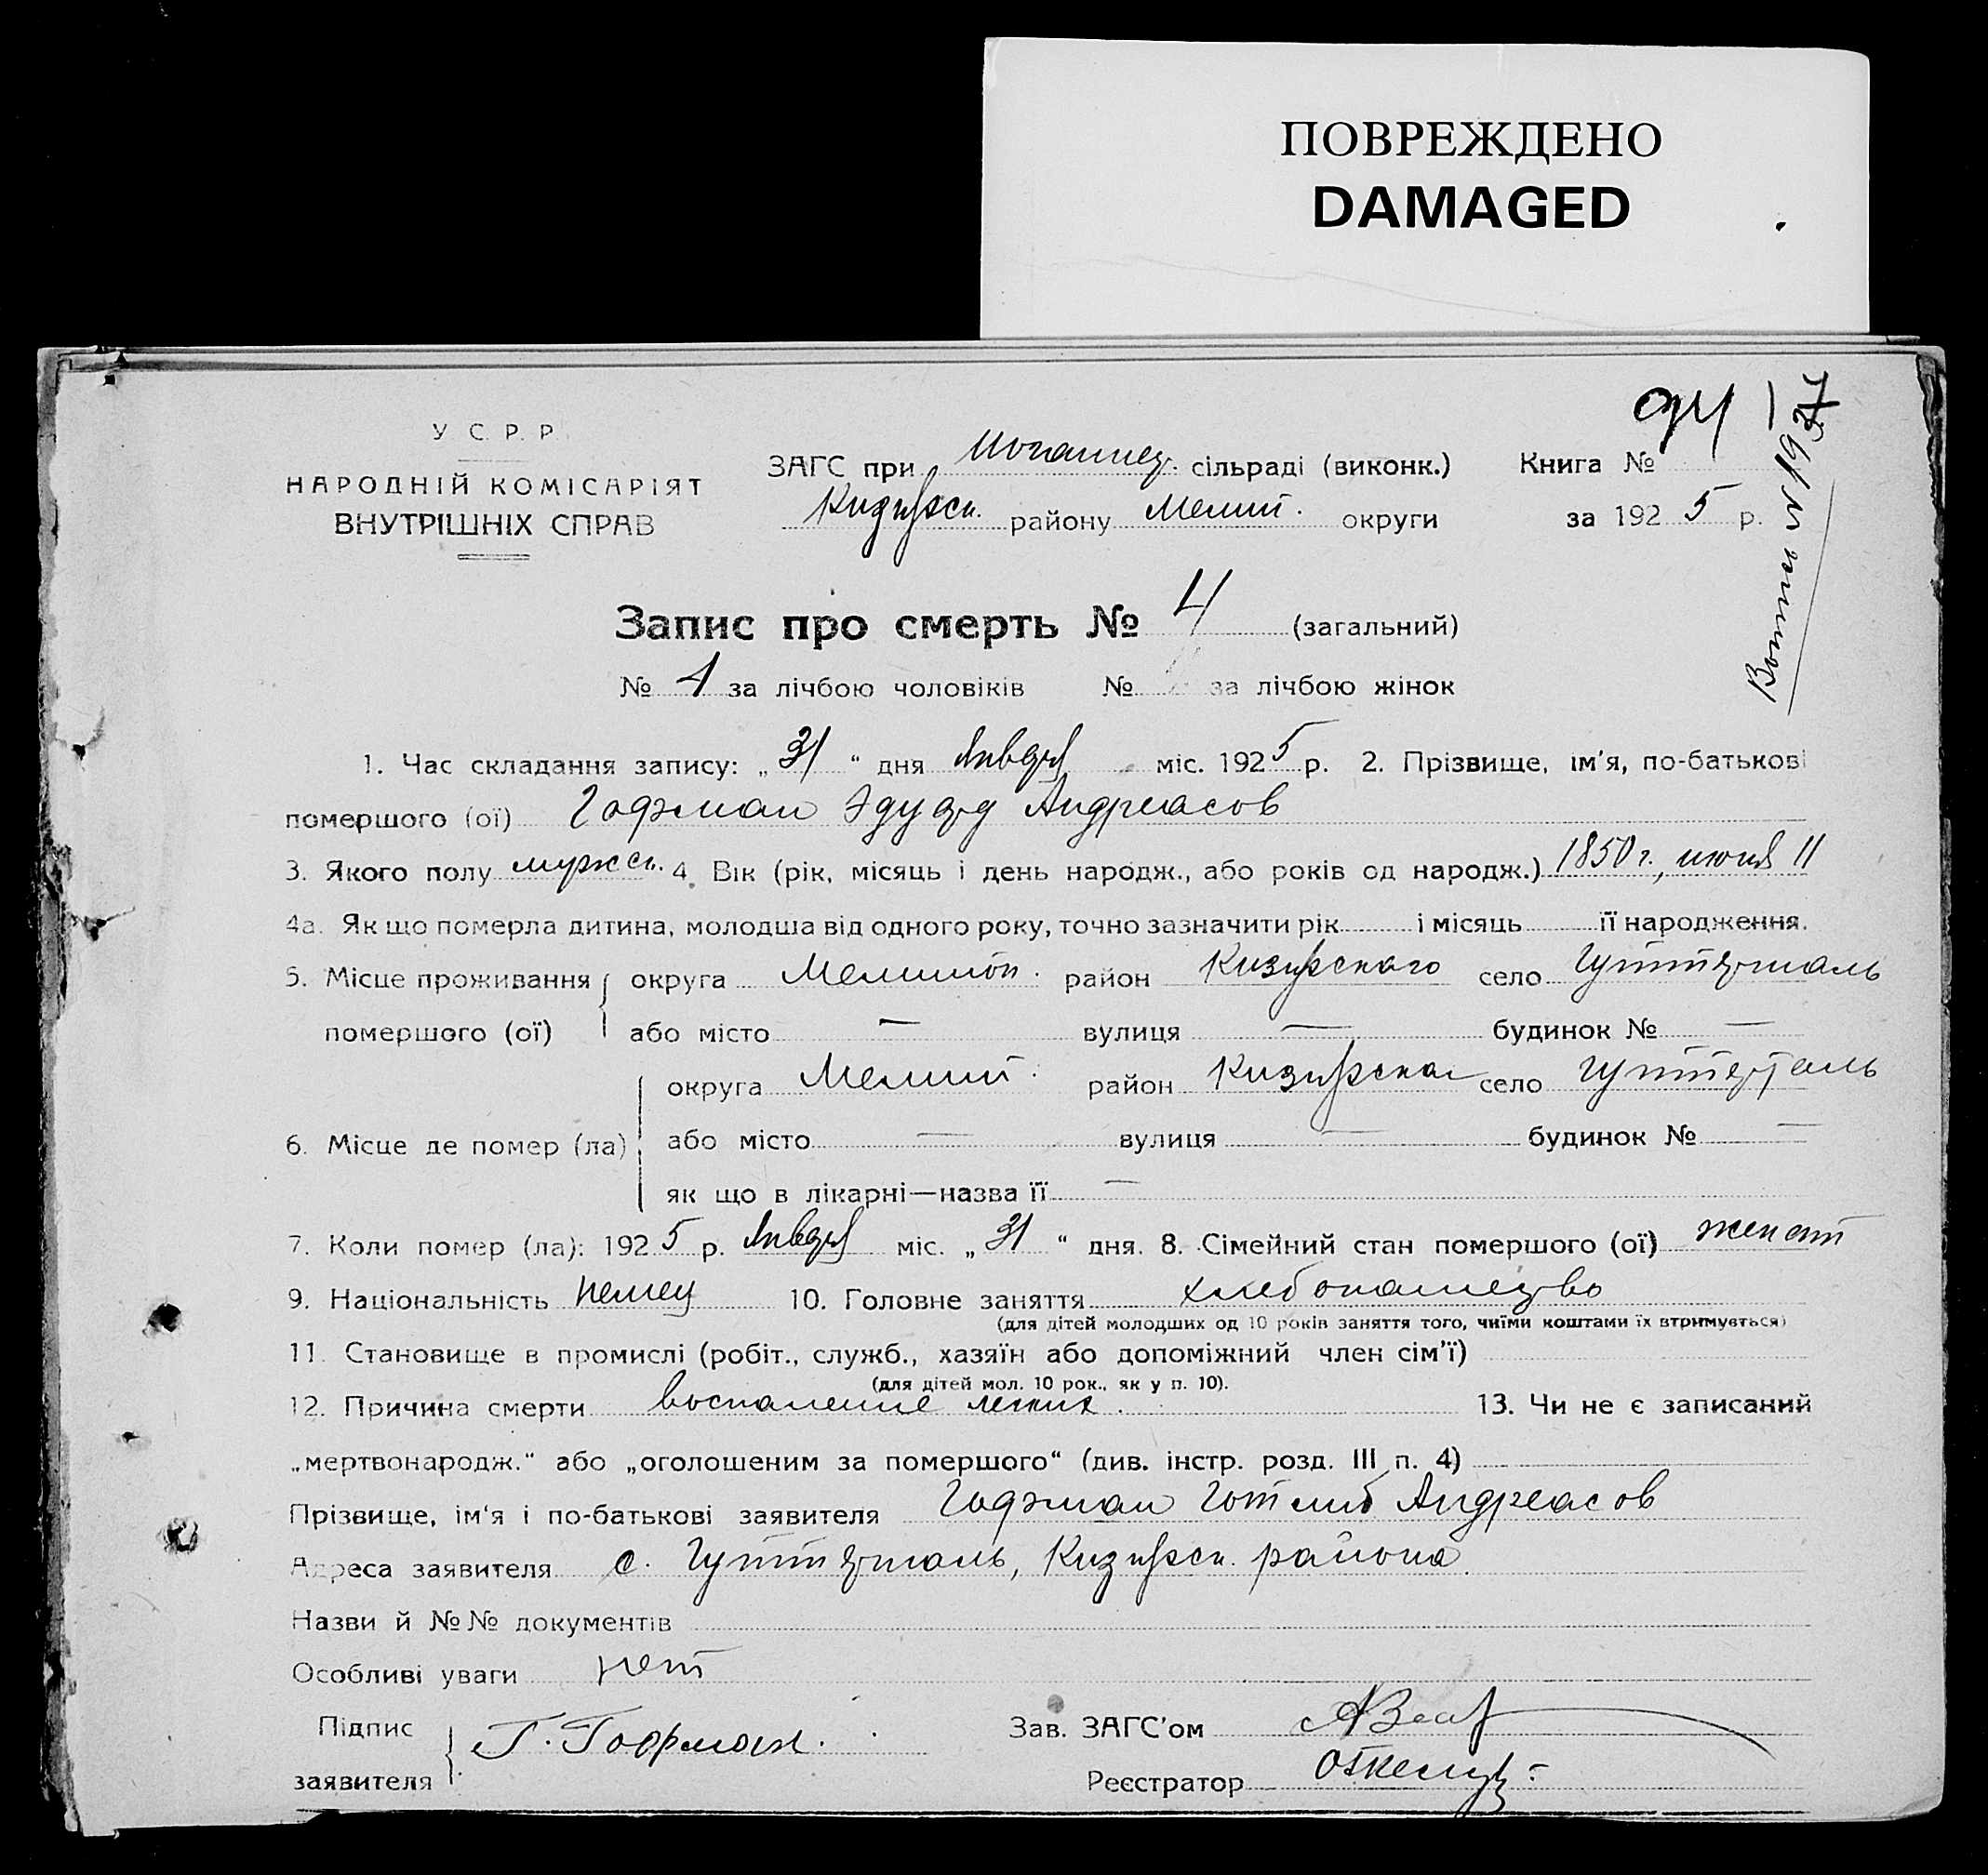 ПОВРЕЖДЕНО
DAMAGED
У С. Р. Р.
НАРОДНІЙ КОМІСАРІЯТ
ВНУТРІШНІХ СПРАВ
ЗАГС при сільраді (виконк.)
району Мелит. округи
Книга № 94
за 1925 р.
Запис про смерть № 4 (загальний)
№ 1 за лічбою чоловіків № за лічбою жінок
1. Час складання запису: „31“ дня января міс. 1925 р. 2. Прізвище, ім'я, по-батькові
помершого (ої) Гофман Эдуард Андреасов
3. Якого полу мужск. 4. Вік (рік, місяць і день народж., або років од народж.) 1850 г., июня 11
4а. Як що померла дитина, молодша від одного року, точно зазначити рік і місяць її народження.
5. Місце проживання помершого (ої) округа Мелитоп. район Кизиярского село Гуттерталь
або місто — вулиця — будинок № —
6. Місце де помер (ла) округа Мелит. район село Гуттерталь
або місто — вулиця — будинок № —
як що в лікарні—назва її —
7. Коли помер (ла): 1925 р. января міс. „31“ дня. 8. Сімейний стан помершого (ої) женат
9. Національність немец 10. Головне заняття хлебопашество
(для дітей молодших од 10 років заняття того, чиїми коштами їх втримується)
11. Становище в промислі (робіт., служб., хазяїн або допоміжний член сім'ї)
(для дітей мол. 10 рок., як у п. 10).
12. Причина смерти воспаление легких. 13. Чи не є записаний
„мертвонародж.“ або „оголошеним за помершого“ (див. інстр. розд. III п. 4)
Прізвище, ім'я і по-батькові заявителя Гофман Готлиб Андреасов
Адреса заявителя с. Гуттерталь, Кизиярск. района.
Назви й №№ документів
Особливі уваги нет
Підпис заявителя Г. Гофман.
Зав. ЗАГС'ом
Реєстратор